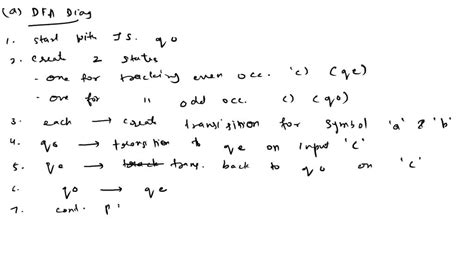 (a) DFA Diag
1. start with I.S. q0
2. creat 2 states
- one for tracking even occ. 'c) (qe)
- one for 〃 odd occ. c) (q0)
3. each → creat transition for symbol 'a' & 'b'
4. q0 → transition to qe on input 'c'
5. q0 → trans. back to q0 on 'c'
6. q0 → qe
7. cont.